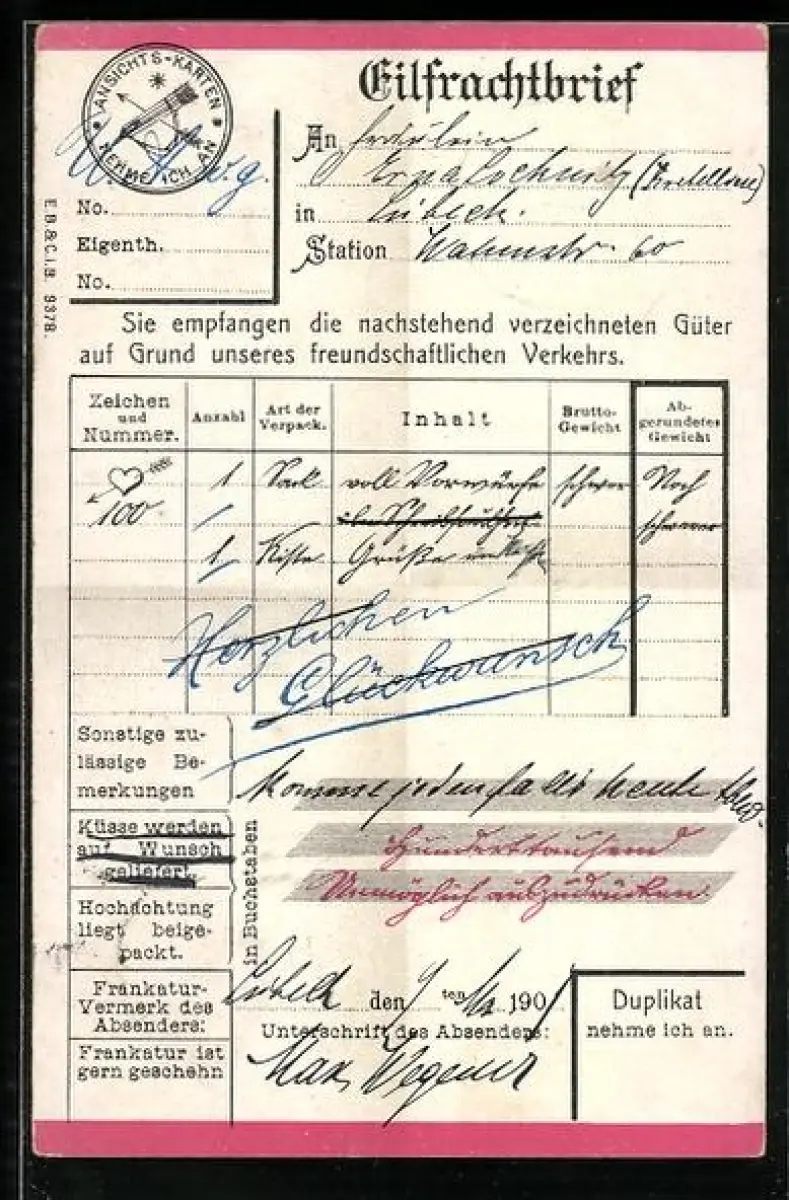 ANSICHTS-KARTEN
NEHME ICH AN
Eilfrachtbrief
An Fräulein
in Lübeck.
Station 60
No.
Eigenth.
No.
E.B.&C.i.B. 9378.
Sie empfangen die nachstehend verzeichneten Güter
auf Grund unseres freundschaftlichen Verkehrs.
Zeichen und Nummer. Anzahl Art der Verpack. Inhalt Brutto-Gewicht Ab-gerundetes Gewicht
100 1 Sack voll Vorwürfe schwer Noch
schwerer
1 Kiste Grüße
Herzlichen
Glückwunsch
Sonstige zu-
lässige Be-
merkungen
Komme jedenfalls heute Abd.
Küsse werden
auf Wunsch
geliefert
in Buchstaben
Hunderttausend
Unmöglich auszudrücken.
Hochachtung
liegt beige-
packt.
Frankatur-
Vermerk des
Absenders:
Frankatur ist
gern geschehn
Lübeck den 9 ten 190
Unterschrift des Absenders:
Max Wegener
Duplikat
nehme ich an.